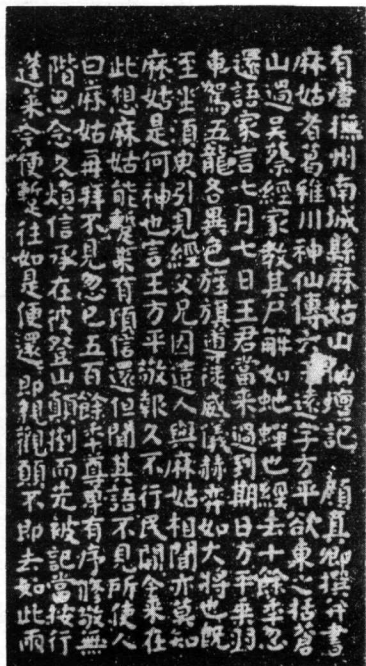 有唐撫州南城縣麻姑山仙壇記 顏真卿撰并書
麻姑者葛稚川神仙傳云遠字方平欲東之括蒼
山過吳蔡經家教其尸解如虵蟬也經去十餘年忽
還語家言七月七日王君當來過到期日方平乘羽
車駕五龍各異色旌旗導從威儀赫弈如大將也既
至坐須臾引見經父兄因遣人與麻姑相聞亦莫知
麻姑是何神也言王方平敬報久不行民間今來在
此想麻姑能暫來有頃信還但聞其語不見所使人
曰麻姑再拜不見忽已五百餘年尊卑有序修敬無
階思念久煩信承在彼登山顛倒而先被記當按行
蓬萊今便暫往如是便還即親觀願不即去如此兩